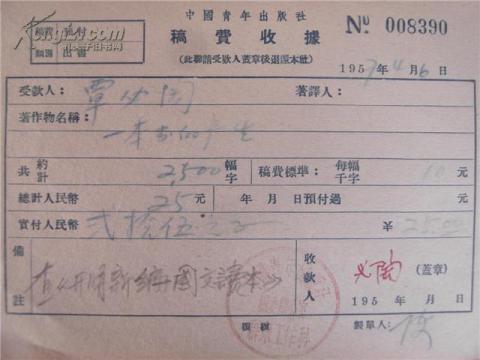 中國青年出版社
稿費收據
№ 008390
(此聯請受款人蓋章後退還本社)
1957年4月6日
受款人：覃必陶 著譯人：
著作物名稱：
一本書的產生
共約計 2,500 幅字 稿費標準：每幅千字 10 元
總計人民幣 25 元 年 月 日預付過 元
實付人民幣 弍拾伍元正 ¥ 25.00
備註 查《開明新編國文讀本》
收款人 必陶 (蓋章)
195 年 月 日
製單人：